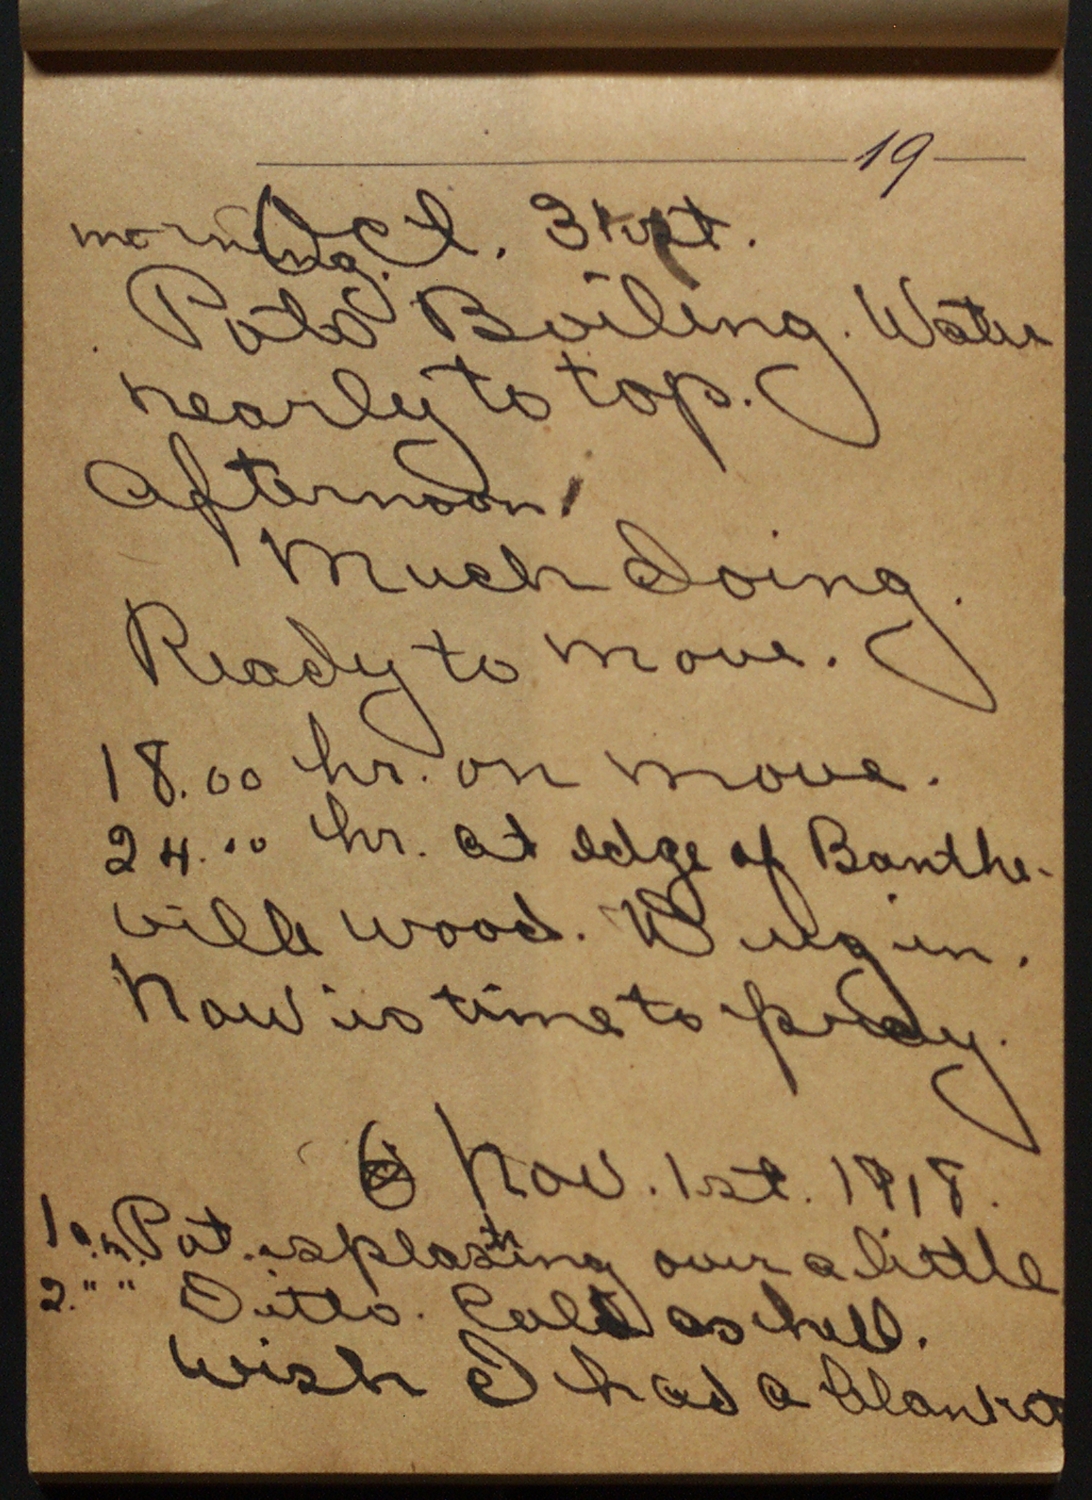 19
Oct. 31st.
morning.
Pots Boiling. Water
nearly to top.
afternoon
Much doing.
Ready to move.
18.00 hr. on move.
24.00 hr. at edge of Banthe-
ville wood. Dug in.
Now is time to pray.
Nov. 1st. 1918.
1 a.m. Pot. is splashing over a little
2. " " Ditto. Cold as hell.
Wish I had a blanket